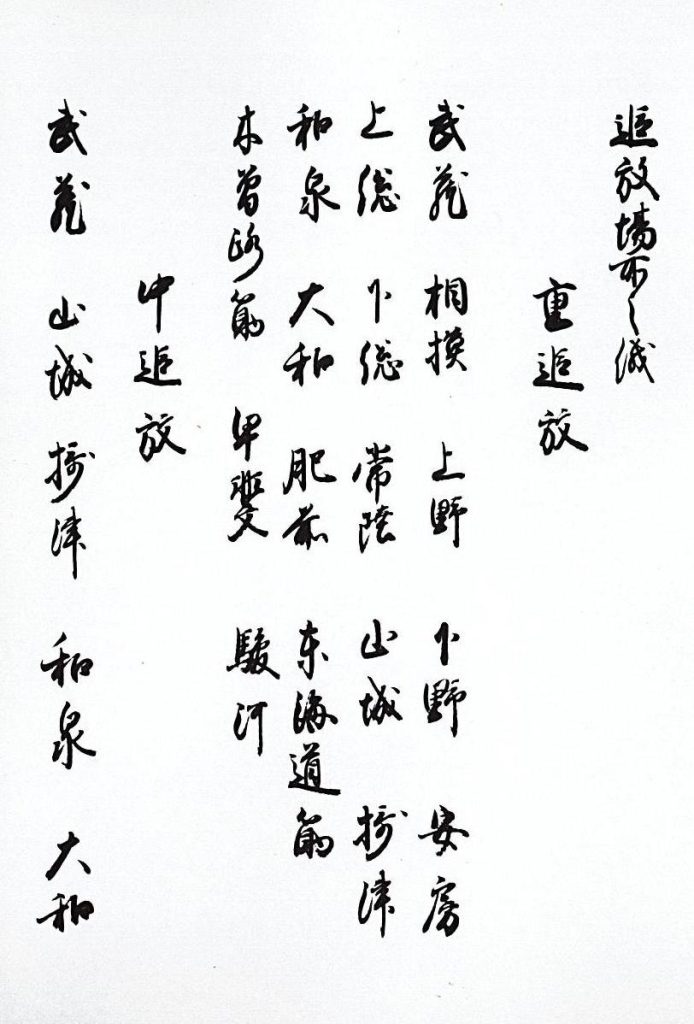 追放場所之儀
重追放
武蔵 相模 上野 下野 安房
上総 下総 常陸 山城 摂津
和泉 大和 肥前 东海道筋
木曽路筋 甲斐 駿河
中追放
武蔵 山城 摂津 和泉 大和